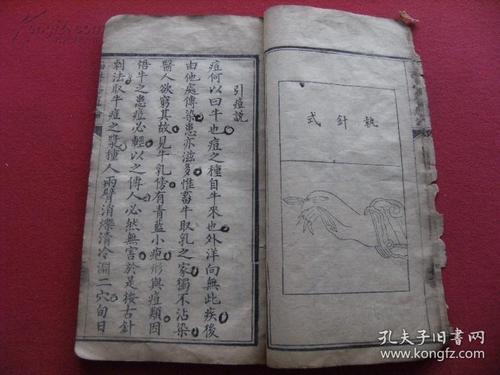 引痘說
痘何以曰牛也痘之種自牛來也外洋向無此疾後
由他處傳染患亦滋多惟畜牛取乳之家獨不沾染
醫人欲窮其故見牛乳傍有青藍小疱形與痘類因
悟牛之患痘必輕以之傳人必然無害於是按古針
刺法取牛痘之漿種人兩臂消爍清冷淵二穴旬日
執針式
孔夫子旧书网
www.kongfz.com